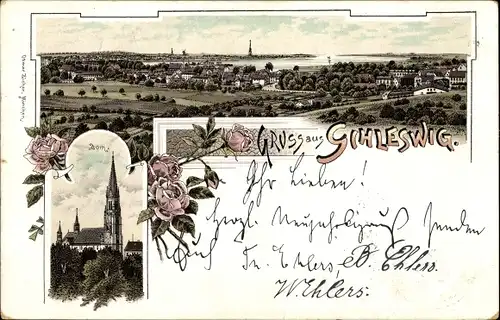 GRUSS aus SCHLESWIG.
Dom.
Ihr Lieben!
Herzl. Neujahrsgruss senden
Euch Fr. Ehlers, B. Ehlers.
W. Ehlers.